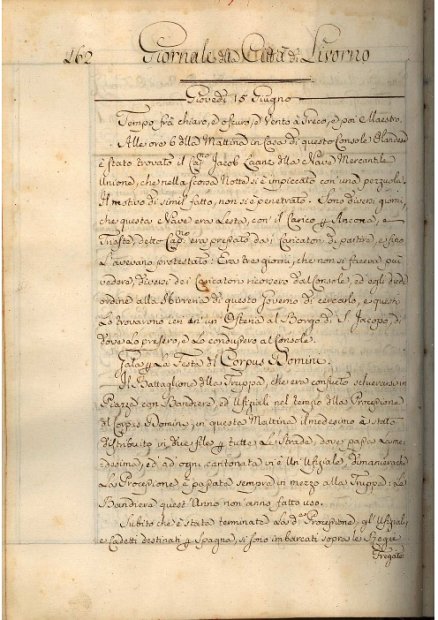 162 Giornale della Città di Livorno
Giovedì 15 Giugno
Tempo frà chiaro, e oscuro, e Vento à Greco, e poi Maestro.
Alle ore 6 della Mattina in Casa di questo Console Olandese
è stato trovato il Cap.no Jacob della Nave Mercantile
Unione, che nella scorsa Notte si è impiccato con una pezzuola:
Il motivo di simil fatto, non si è penetrato. Sono diversi giorni,
che questa Nave era Lesta, con il Carico p Ancona, e
Trieste, detto Cap.no era pressato dai Caricatori di partire, e fino
L'avevano protestato: Era tre giorni, che non si faceva più
vedere, Diversi dei Caricatori ricorsero dal Console, ed egli dede
ordine alla Sbirreria di questo Governo di cercarlo, e questi
Lo trovarono ieri in un'Osteria al Borgo di S. Jacopo, di
dove Lo presero, e Lo condussero al Console.
Gala p La Festa del Corpus Domini.
Il Battaglione della Truppa, che era consueto schierarsi in
Piazza con Bandiera, ed Ufiziali nel tempo della Processione
del Corpus Domini, in questa Mattina il medesimo è stato
distribuito in due file p tutte Le Strade, dove passa La me-
desima, ed ad ogni cantonata vi è Un Ufiziale, dimanierache
La Processione è passata sempre in mezzo alla Truppa: La
Bandiera quest'Anno non anno fatto uso.
Subito che è stata terminata La d.a Processione, gl'Ufiziali,
e Cadetti destinati p Spagna, si sono imbarcati sopra le
Fregate